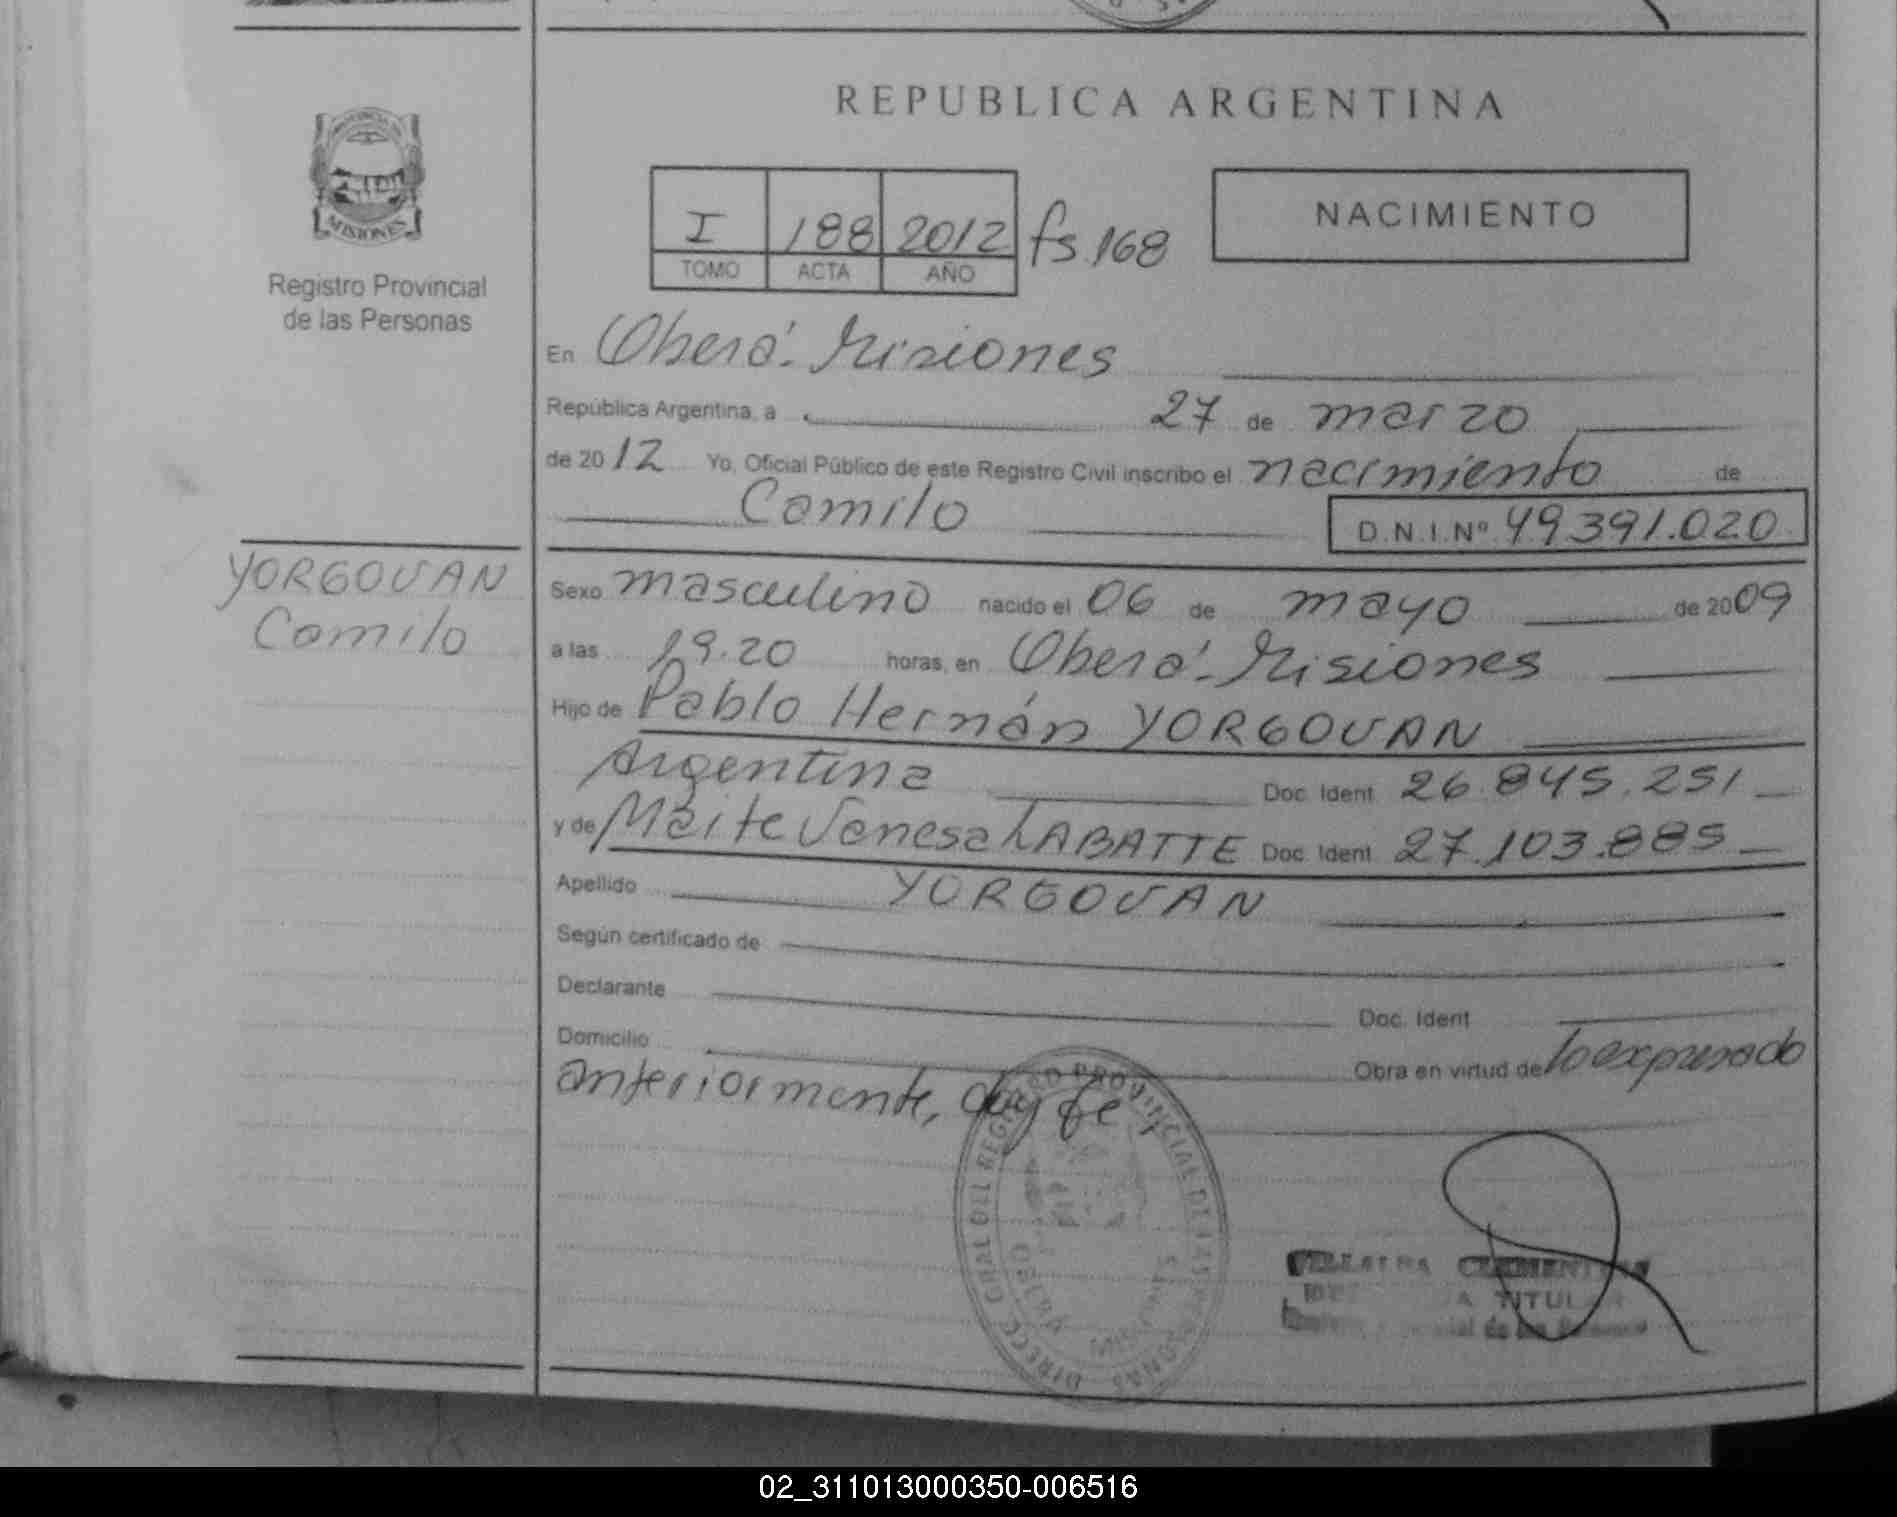 REPUBLICA ARGENTINA
PROVINCIA DE
MISIONES
Registro Provincial
de las Personas
I 188 2012 fs.168
TOMO ACTA AÑO
NACIMIENTO
En Oberá - Misiones
República Argentina, a 27 de marzo
de 2012 Yo, Oficial Público de este Registro Civil inscribo el nacimiento de
Camilo D.N.I.Nº 49.391.020
YORGOVAN
Camilo
Sexo masculino nacido el 06 de mayo de 2009
a las 19.20 horas, en Oberá - Misiones
Hijo de Pablo Hernán YORGOVAN
Argentina Doc. Ident. 26.845.251
y de Maite Vanesa LABATTE Doc. Ident. 27.103.885
Apellido YORGOVAN
Según certificado de
Declarante Doc. Ident
Domicilio Obra en virtud de lo expresado
anteriormente, doy fe.
DIRECC. GRAL DEL REGISTRO PROVINCIAL DE LAS PERSONAS
OBERÁ MISIONES
TITULAR
de las
02_311013000350-006516